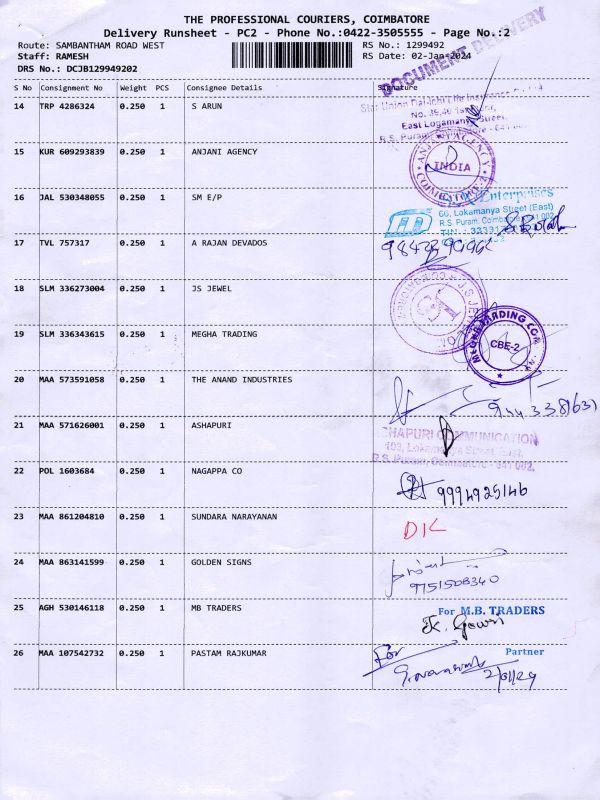 THE PROFESSIONAL COURIERS, COIMBATORE
Delivery Runsheet - PC2 - Phone No.:0422-3505555 - Page No.:2
Route: SAMBANTHAM ROAD WEST RS No.: 1299492
Staff: RAMESH RS Date: 02-Jan-2024
DRS No.: DCJB129949202
DOCUMENT DELIVERY
S No Consignment No Weight PCS Consignee Details Signature
14 TRP 4286324 0.250 1 S ARUN
Star Union Dai-ichi Life Insurance
East Logamanya Street,
R.S. Puram,
15 KUR 609293839 0.250 1 ANJANI AGENCY
ANJANI AGENCY INDIA COIMBATORE-2
16 JAL 530348055 0.250 1 SM E/P
Enterprises
66, Lokamanya Street (East)
R.S. Puram, Coimbatore - 641 002
TIN :
17 TVL 757317 0.250 1 A RAJAN DEVADOS
18 SLM 336273004 0.250 1 JS JEWEL
19 SLM 336343615 0.250 1 MEGHA TRADING
MEGHA TRADING CO. CBE-2
20 MAA 573591058 0.250 1 THE ANAND INDUSTRIES
21 MAA 571626001 0.250 1 ASHAPURI
SHAPURI COMMUNICATION
103, Lokamanya Street, East,
R.S. Puram, Coimbatore - 641 002.
22 POL 1603684 0.250 1 NAGAPPA CO
9994925146
23 MAA 861204810 0.250 1 SUNDARA NARAYANAN
D/L
24 MAA 863141599 0.250 1 GOLDEN SIGNS
9751508340
25 AGH 530146118 0.250 1 MB TRADERS
For M.B. TRADERS
K. Gowri
Partner
26 MAA 107542732 0.250 1 PASTAM RAJKUMAR
For
2/01/24